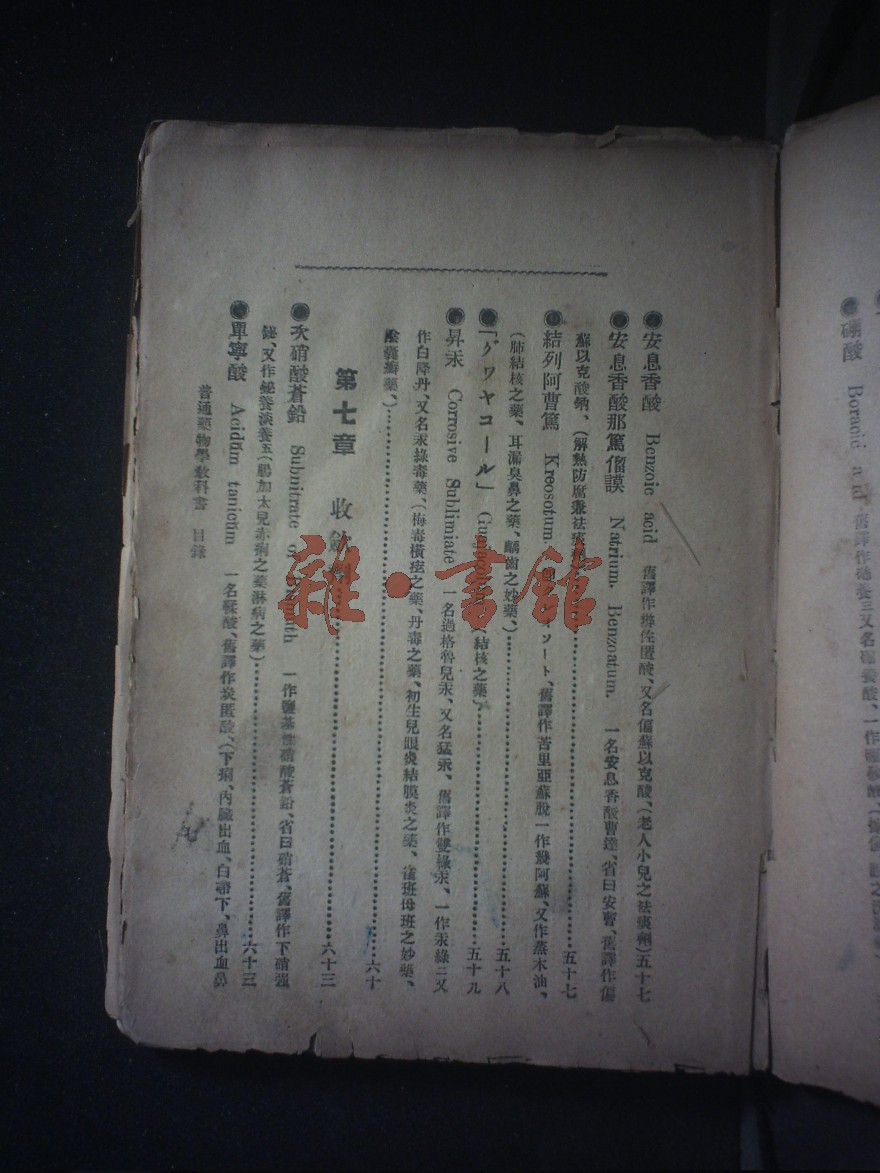 ●安息香酸 Benzoic acid 舊譯作 匿酸、又名偏蘇以克酸、(老人小兒之祛痰劑)五十七
●安息香酸那篤僧謨 Natrium. Benzoatum. 一名安息香酸曹達、省曰安曹、舊譯作偏
蘇以克酸鈉、(解熱防腐兼祛痰
●結列阿曹篤 Kreosotum. ソート、舊譯作苦里亞蘇脫一作幾阿蘇、又作蒸木油、 五十七
(肺結核之藥、耳漏臭鼻之藥、齲齒之妙藥、)……五十八
●「グワヤコール」 (結核之藥)……五十九
●昇汞 Corrosive Sublimiate 一名過格魯兒汞、又名猛汞、舊譯作雙綠汞、一作汞綠二又
作白降丹、又名汞綠毒藥、(梅毒橫痃之藥、丹毒之藥、初生兒眼炎結膜炎之藥、雀班母班之妙藥、
陰囊癬藥、)……六十
第七章 收斂劑……六十三
●次硝酸蒼鉛 Subnitrate 一作鹽基性硝酸蒼鉛、省曰硝蒼、舊譯作下硝強
鉍、又作鉍養淡養五(腸加太兒赤痢之藥淋病之藥)……六十三
●單寧酸 Acidum tanicum 一名鞣酸、舊譯作炭匿酸、(下痢、內臟出血、白帶下、鼻出血鼻
普通藥物學教科書 目錄
雜·書館
●硼酸 Boracic acid 舊譯作 養三又名